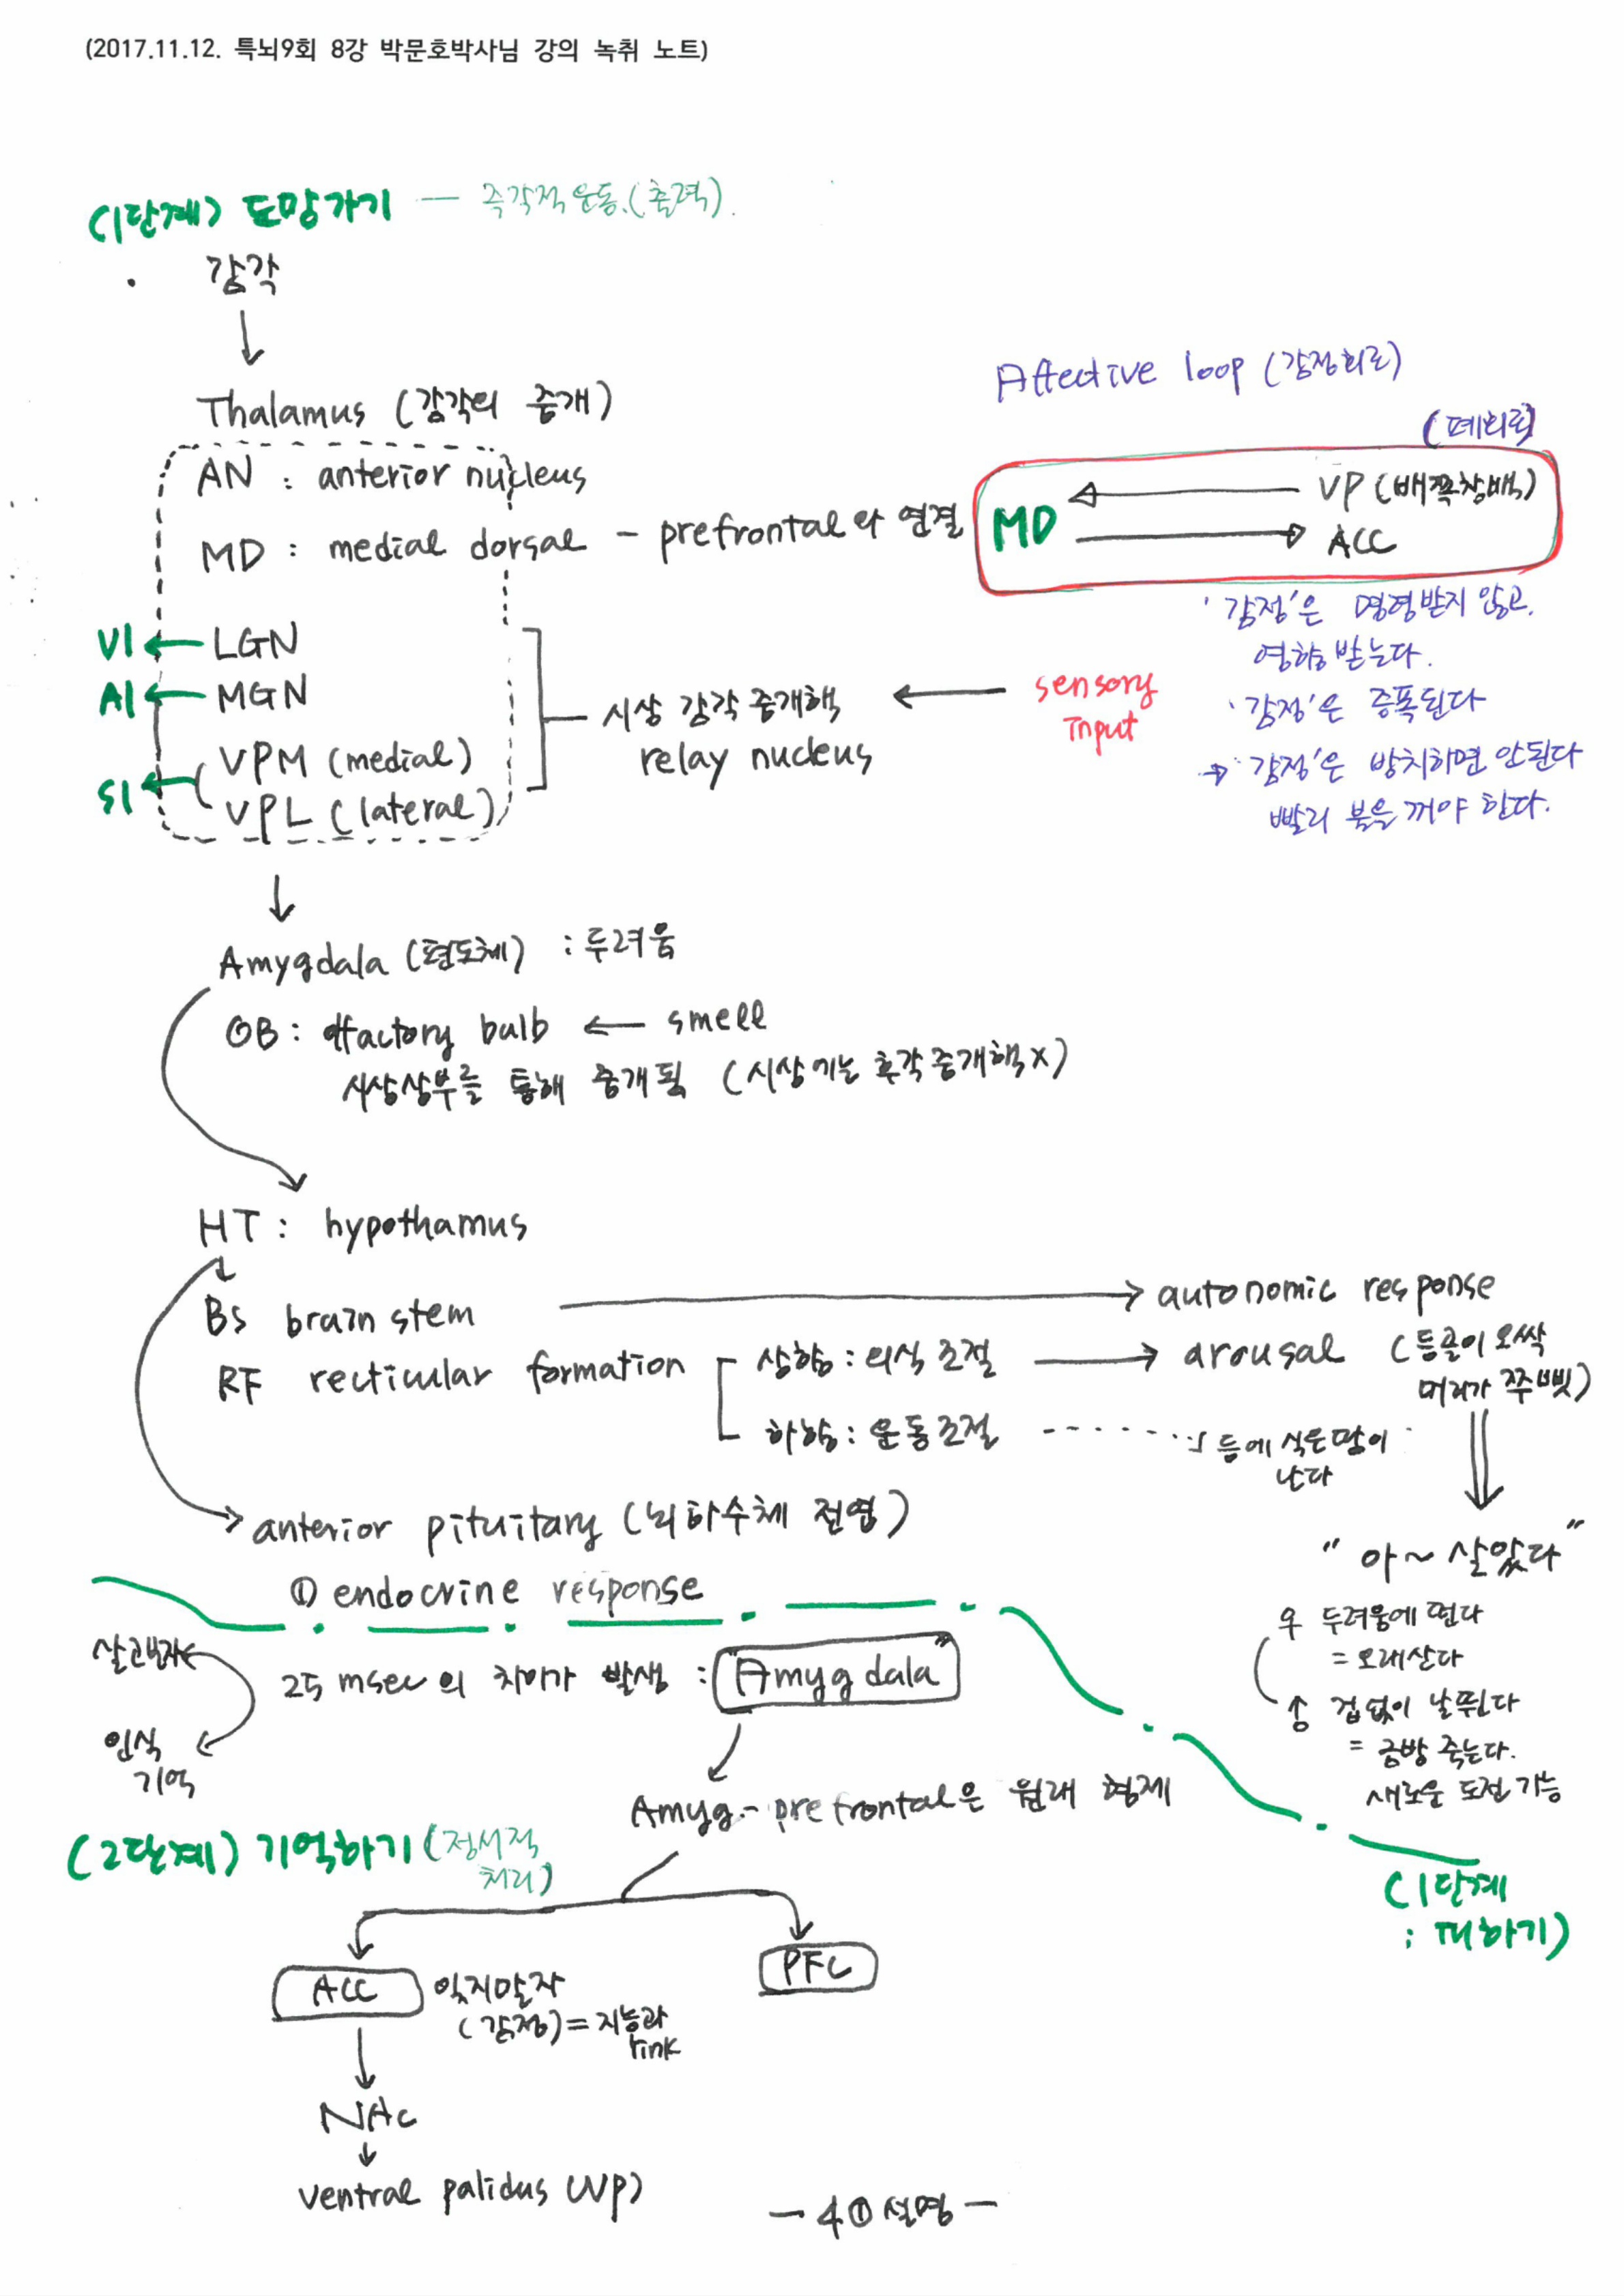 (2017.11.12. 특뇌9회 8강 박문호박사님 강의 녹취 노트)
(1단계) 도망가기 — 즉각적 운동.(출력).
감각
Thalamus (감각의 중개)
AN : anterior nucleus
MD : medial dorsal - prefrontal와 연결
V1 ← LGN
A1 ← MGN
S1 ← VPM (medial)
VPL (lateral)
시상 감각 중개핵
relay nucleus
← sensory
Input
Affective loop (감정회로)
(폐회로)
MD
VP (배쪽창백)
ACC
'감정'은 명령받지 않고.
영향 받는다.
'감정'은 증폭된다
→ '감정'은 방치하면 안된다
빨리 불을 꺼야 한다.
Amygdala (편도체) : 두려움
OB : olfactory bulb ← smell
시상상부를 통해 중개됨 (시상에는 후각중개핵x)
HT : hypothamus
BS brain stem → autonomic response
RF recticular formation
상향 : 의식 조절 → arousal (등골이 오싹
머리가 쭈뼛)
하향 : 운동조절 등에 식은땀이
난다
anterior pituitary (뇌하수체 전엽)
① endocrine response
"아~ 살았다"
우 두려움에 떤다
= 오래산다
겁없이 날뛴다
= 금방 죽는다.
새로운 도전 가능
살고보자
인식
기억
25 msec의 차이가 발생 : "Amygdala"
Amyg.- prefrontal은 원래 형제
(2단계) 기억하기 (정서적
처리)
(1단계
: 피하기)
ACC
잊지말자
(감정) = 지능과
rink
PFC
NAc
ventral palidus (VP)
- 4① 설명 -